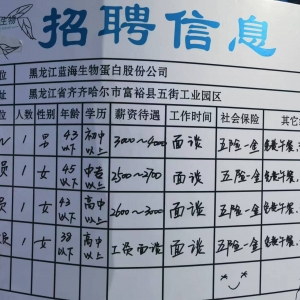 生物
招聘信息
位 黑龙江蓝海生物蛋白股份公司
址 黑龙江省齐齐哈尔市富裕县五街工业园区
位 人数 性别 年龄 学历 薪资待遇 工作时间 社会保险 其它
1 男 43以下 初中以上 3000~4000 面谈 五险一金 免费午餐、
员 1 女 45以下 中专以上 2500~2700 面谈 五险一金 免费午餐、
员 1 女 43以下 高中以上 2600~3000 面谈 五险一金 免费午餐、
员 1 女 38以下 高中以上 工资面谈 面谈 五险一金 免费午餐、